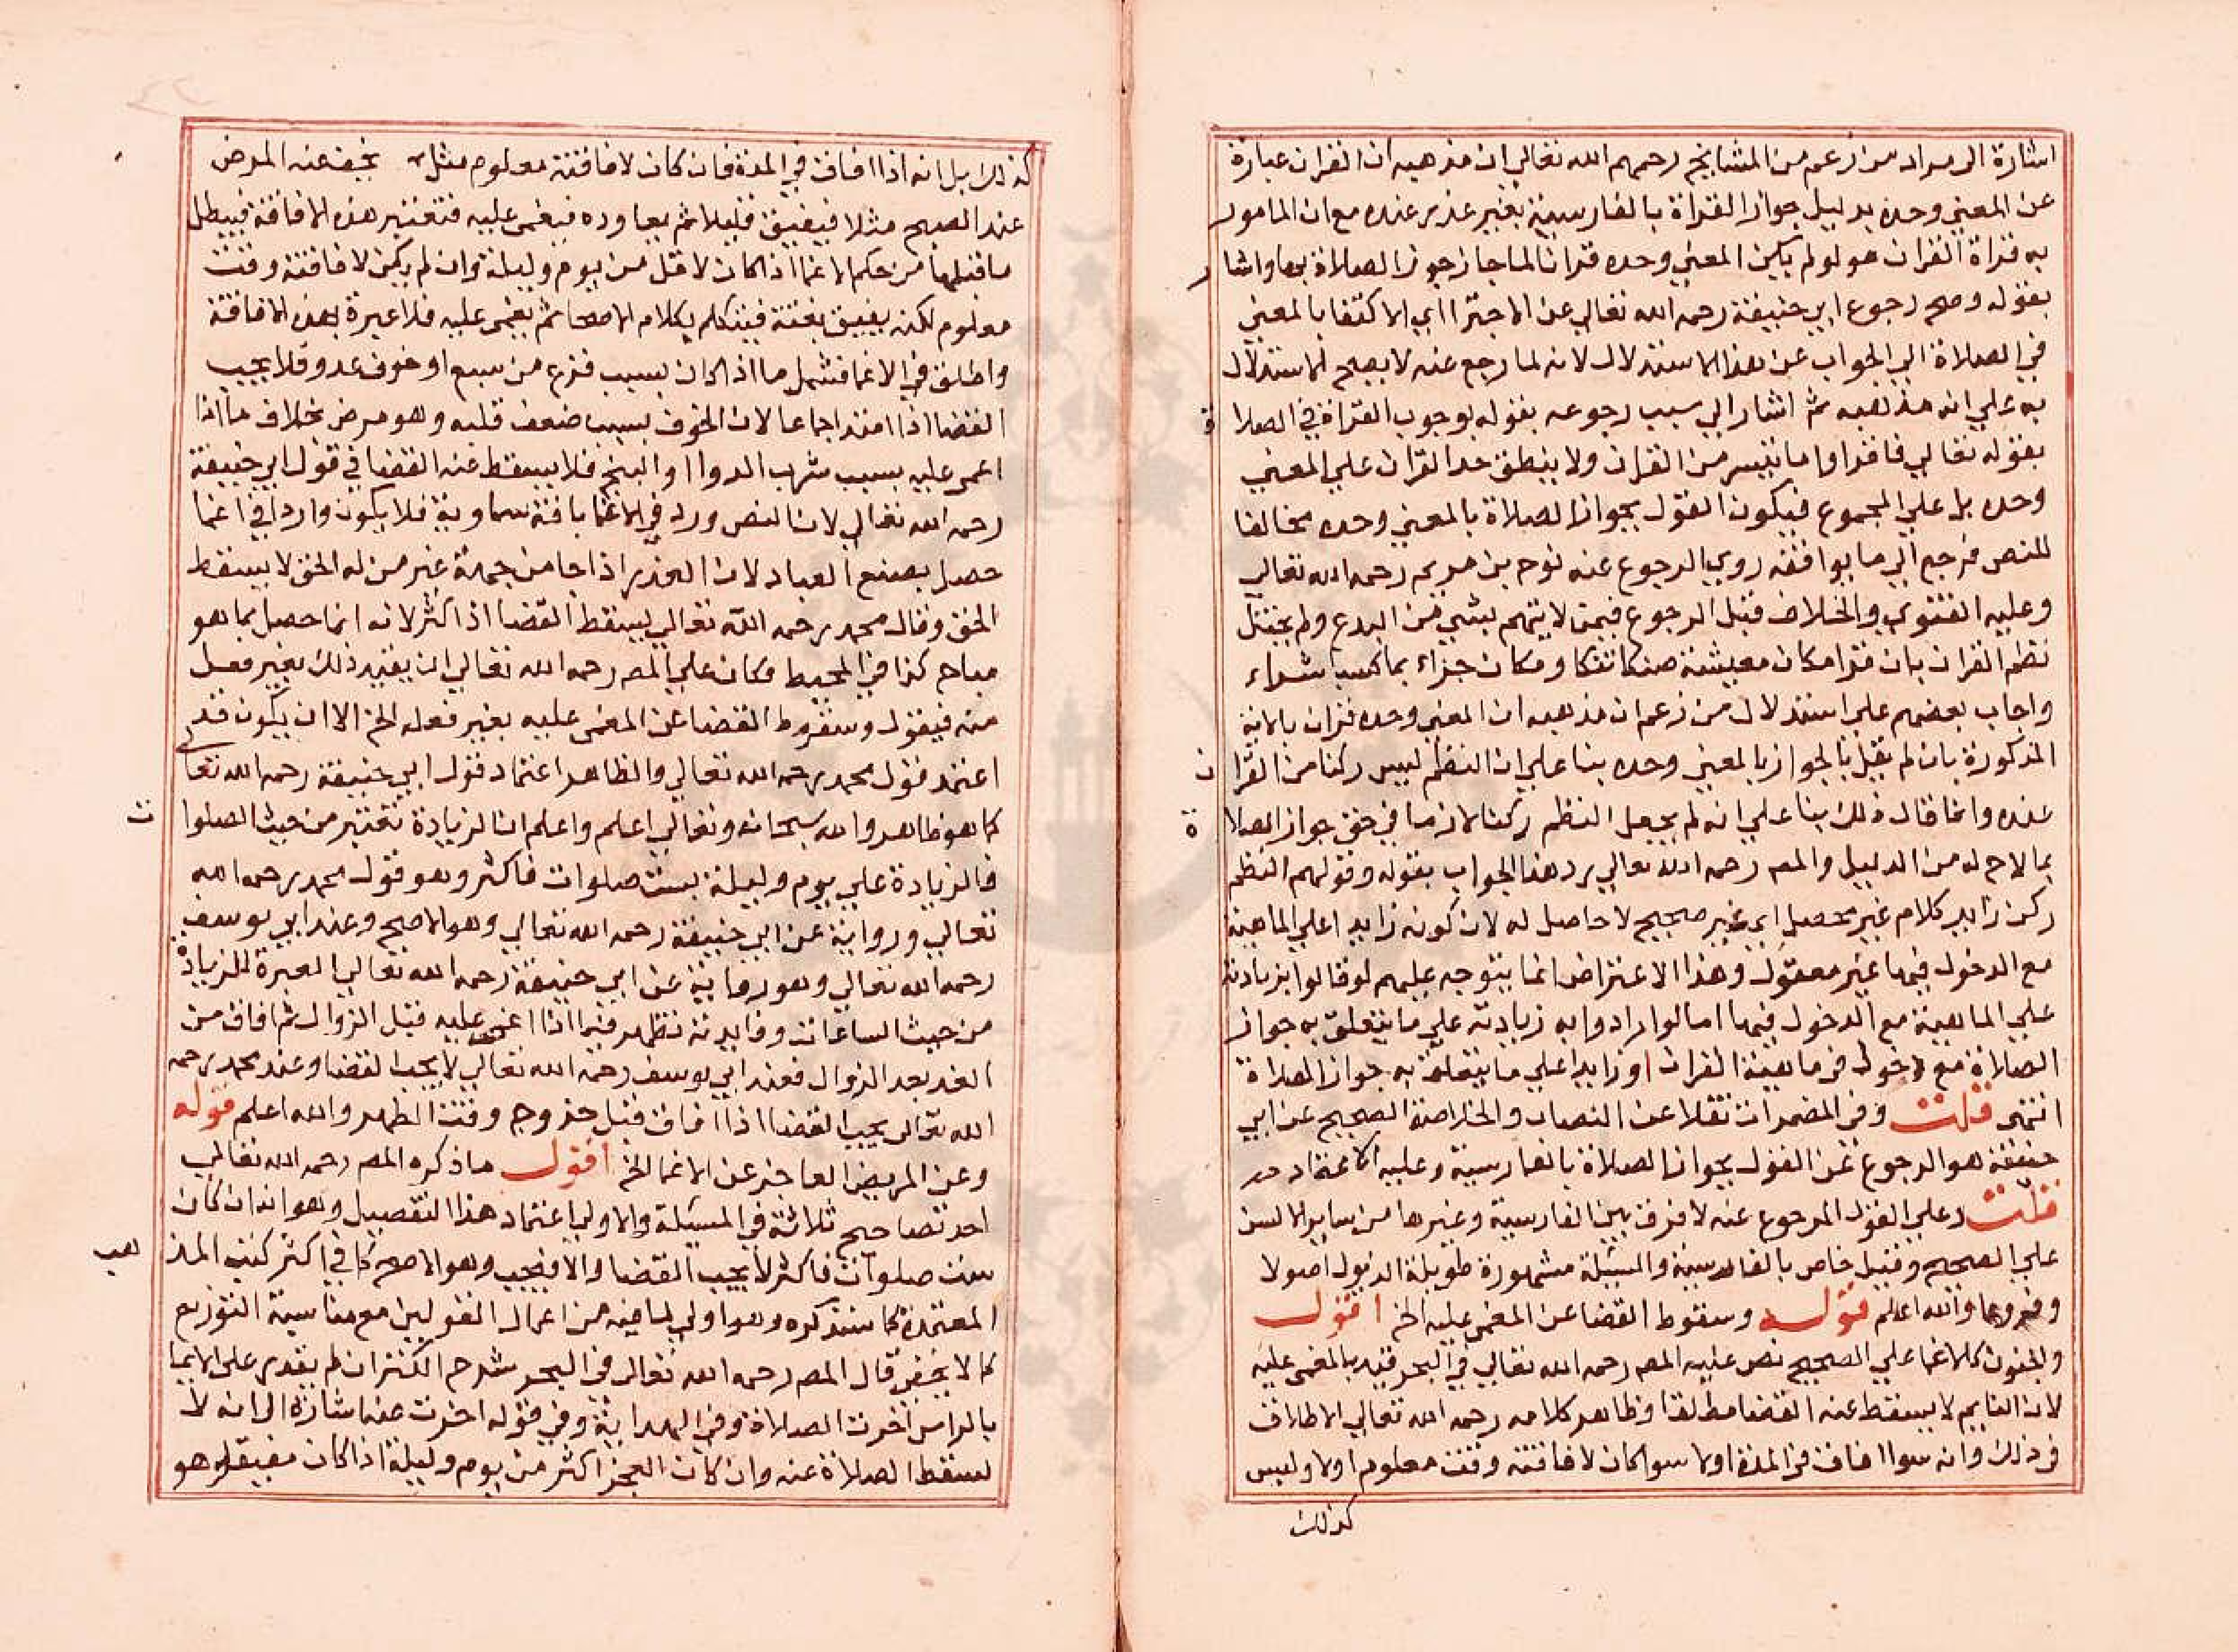 اشارة الى مراد من زعم من المشايخ رحمهم الله تعالى ان مذهبه ان القران عبارة
عن المعنى وحده بدليل جواز القراة بالفارسية بغير عذر عنده مع ان المامور
به قراة القران هو لو لم يكن المعنى وحده قرانا لما جاز جواز الصلاة بها واشار
بقوله وصح رجوع ابي حنيفة رحمه الله تعالى عن الاجتزا اي الاكتفا بالمعنى
في الصلاة الى الجواب عن هذا الاستدلال لانه لما رجع عنه لا يصح الاستدلال
به على انه مذهبه ثم اشار الى سبب رجوعه بقوله لوجوب القراة في الصلاة
بقوله تعالى فاقراوا ما تيسر من القران ولا ينطلق حد القران على المعنى
وحده بل على المجموع فيكون القول بجواز الصلاة بالمعنى وحده مخالفا
للنص فرجع الى ما يوافقه روى الرجوع عنه نوح بن مريم رحمه الله تعالى
وعليه الفتوى والخلاف قبل الرجوع فيمن لا يتهم بشي من البدع ولم يختل
نظم القران بان قرا مكان معيشة ضنكا ومكان جزاء بما كسبا
واجاب بعضهم على استدلال من زعم ان مذهبه ان المعنى وحده قران بالاية
المذكورة بان لم يقل بالجواز بالمعنى وحده بنا على ان النظم ليس ركنا من القران
عنده وانما قال ذلك بنا على انه لم يجعل النظم ركنا لازما في حق جواز الصلاة
بما لاح له من الدليل والمص رحمه الله تعالى يرد هذا الجواب بقوله وقولهم النظم
ركن زايد كلام غير محصل اي غير صحيح لا حاصل له لان كونه زايدا على الماهية
مع الدخول فيها غير معقول وهذا الاعتراض انما يتوجه عليهم لو قالوا بزيادته
على الماهية مع الدخول فيها اما لو ارادوا به زيادته على ما يتعلق به جواز
الصلاة مع دخوله في ماهية القران او زايدا على ما يتعلق به جواز الصلاة
انتهى قلت وفي المضمرات نقلا عن النصاب والخلاصة الصحيح عن ابي
حنيفة هو الرجوع عن القول بجواز الصلاة بالفارسية وعليه الاعتماد
قلت وعلى القول المرجوع عنه لا فرق بين الفارسية وغيرها من ساير الالسن
على الصحيح وقيل خاص بالفارسية والمسئلة مشهورة طويلة الذيول اصولا
وفروعا والله اعلم قوله وسقوط القضا عن المغمى عليه الخ اقول
والجنون كالاغما على الصحيح نص عليه المص رحمه الله تعالى في البحر قيد بالمغمى عليه
لان النايم لا يسقط عنه القضا مطلقا وظاهر كلامه رحمه الله تعالى الاطلاق
في ذلك وانه سوا افاق في المدة او لا سوا كان لافاقته وقت معلوم او لا وليس
كذلك
كذلك بل انه اذا افاق في المدة فان كان لافاقته معلوم مثل يخف عنه المرض
عند الصبح مثلا فيفيق قليلا ثم يعاوده فيغمى عليه فتعتبر هذه الافاقة فيبطل
ما قبلها من حكم الاغما اذا كان لاقل من يوم وليلة وان لم يكن لافاقته وقت
معلوم لكنه يفيق بغتة فيتكلم بكلام الاصحا ثم يغمى عليه فلا عبرة بهذه الافاقة
واطلق في الاغما فشمل ما اذا كان بسبب فزع من سبع او خوف عدو فلا يجب
القضا اذا امتد اجماعا لان الخوف بسبب ضعف قلبه وهو مرض بخلاف ما اذا
اغمى عليه بسبب شرب الدوا او البنج فلا يسقط عنه القضا في قول ابي حنيفة
رحمه الله تعالى لان النص ورد في الاغما بافة سماوية فلا يكون واردا في اغما
حصل بصنع العباد لان العذر اذا جا من جهة غير من له الحق لا يسقط
الحق وقال محمد رحمه الله تعالى يسقط القضا اذا اكثر لانه انما حصل بما هو
مباح كذا في المحيط فكان على المص رحمه الله تعالى ان يقيد ذلك بغير فعل
منه فيقول وسقوط القضا عن المغمى عليه بغير فعله الخ الا ان يكون قد
اعتمد قول محمد رحمه الله تعالى والظاهر اعتماد قول ابي حنيفة رحمه الله تعالى
كما هو ظاهر والله سبحانه وتعالى اعلم واعلم ان الزيادة تعتبر من حيث الصلوات
فالزيادة على يوم وليلة بست صلوات فاكثر وهو قول محمد رحمه الله
تعالى ورواية عن ابي حنيفة رحمه الله تعالى وهو الاصح وعند ابي يوسف
رحمه الله تعالى وهو رواية عن ابي حنيفة رحمه الله تعالى العبرة للزيادة
من حيث الساعات وفايدته تظهر فيما اذا اغمى عليه قبل الزوال ثم افاق من
الغد بعد الزوال فعند ابي يوسف رحمه الله تعالى لا يجب القضا وعند محمد رحمه
الله تعالى يجب القضا اذا افاق قبل خروج وقت الظهر والله اعلم قوله
وعن المريض العاجز عن الايما الخ اقول ما ذكره المص رحمه الله تعالى
احد تصاحيح ثلاثة في المسئلة والاولى اعتماد هذا التفصيل وهو انه ان كان
ست صلوات فاكثر لا يجب القضا والا فيجب وهو الاصح كما في اكثر كتب المذهب
المعتمدة كما ستذكره وهو اولى لما فيه من اعمال القولين مع مناسبة التوزيع
كما لا يخفى قال المص رحمه الله تعالى في البحر شرح الكنز ان لم يقدر على الايما
بالراس اخرت الصلاة وفي الهداية وفي قوله اخرت عنه اشارة الى انه لا
تسقط الصلاة عنه وان كان العجز اكثر من يوم وليلة اذا كان مفيقا هو